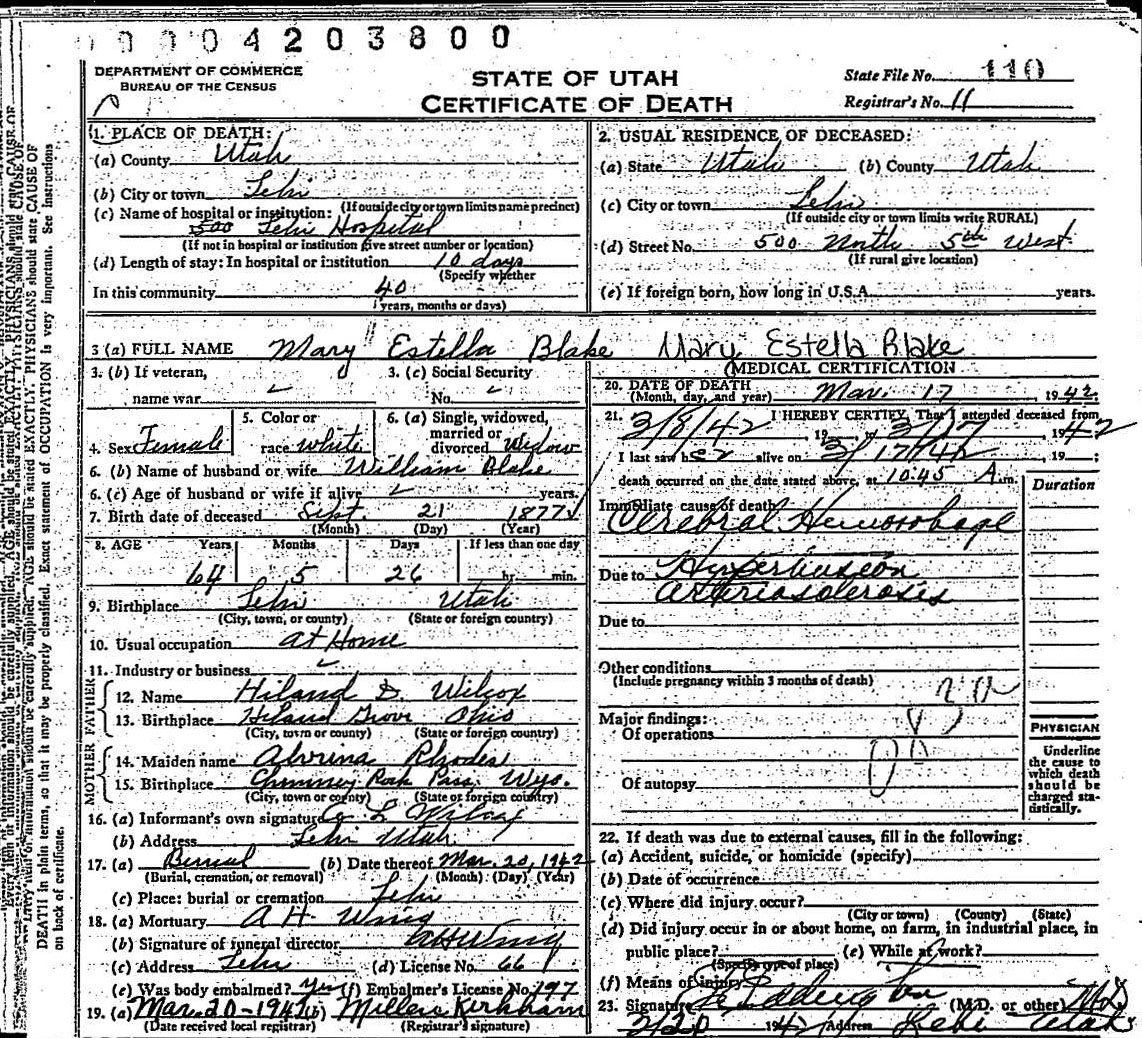 00004203800
DEPARTMENT OF COMMERCE
BUREAU OF THE CENSUS
STATE OF UTAH
CERTIFICATE OF DEATH
State File No. 110
Registrar's No. 11
1. PLACE OF DEATH:
(a) County Utah
(b) City or town Lehi
(If outside city or town limits name precinct)
(c) Name of hospital or institution:
500 Lehi Hospital
(If not in hospital or institution give street number or location)
(d) Length of stay: In hospital or institution 10 days
(Specify whether
In this community 40
years, months or days)
2. USUAL RESIDENCE OF DECEASED:
(a) State Utah (b) County Utah
(c) City or town Lehi
(If outside city or town limits write RURAL)
(d) Street No. 500 North 5th West
(If rural give location)
(e) If foreign born, how long in U.S.A. years.
3 (a) FULL NAME Mary Estella Blake Mary Estella Blake
3. (b) If veteran,
name war
3. (c) Social Security
No.
4. Sex Female
5. Color or
race white
6. (a) Single, widowed,
married or
divorced Widow
6. (b) Name of husband or wife William Blake
6. (c) Age of husband or wife if alive years.
7. Birth date of deceased Sept. 21 1877
(Month) (Day) (Year)
8. AGE Years Months Days If less than one day
64 5 26 hr. min.
9. Birthplace Lehi Utah
(City, town, or county) (State or foreign country)
10. Usual occupation at Home
11. Industry or business
FATHER
12. Name Hiland D. Wilcox
13. Birthplace Hiland Grove Ohio
(City, town or county) (State or foreign country)
MOTHER
14. Maiden name Alvrina Rhodes
15. Birthplace Chimney Rock Pass, Wyo.
(City, town or county) (State or foreign country)
16. (a) Informant's own signature L Wilcox
(b) Address Lehi Utah
17. (a) Burial (b) Date thereof Mar. 20, 1942
(Burial, cremation, or removal) (Month) (Day) (Year)
(c) Place: burial or cremation Lehi
18. (a) Mortuary A H Wing
(b) Signature of funeral director AH Wing
(c) Address Lehi (d) License No. 66
(e) Was body embalmed? Yes (f) Embalmer's License No. 197
19. (a) Mar. 20-194 (b) Kirkham
(Date received local registrar) (Registrar's signature)
MEDICAL CERTIFICATION
20. DATE OF DEATH
(Month, day, and year) Mar. 17 1942
21. I HEREBY CERTIFY, That I attended deceased from
3/8/42, 19 3/17 1942
I last saw her alive on 3/17/42, 19 ;
death occurred on the date stated above, at 10:45 A.m.
Duration
Immediate cause of death
Cerebral Hemorrhage
Due to Hypertension
arteriosclerosis
Due to
Other conditions
(Include pregnancy within 3 months of death)
Major findings:
Of operations
Of autopsy
PHYSICIAN
Underline
the cause to
which death
should be
charged sta-
tistically.
22. If death was due to external causes, fill in the following:
(a) Accident, suicide, or homicide (specify)
(b) Date of occurrence
(c) Where did injury occur?
(City or town) (County) (State)
(d) Did injury occur in or about home, on farm, in industrial place, in
public place? (e) While at work?
(Specify type of place)
(f) Means of injury
23. Signature (M.D. or other) MD
3/20 1942 Address Lehi Utah
DEATH in plain terms, so that it may be properly classified. Exact statement of OCCUPATION is very important. See Instructions
on back of certificate.